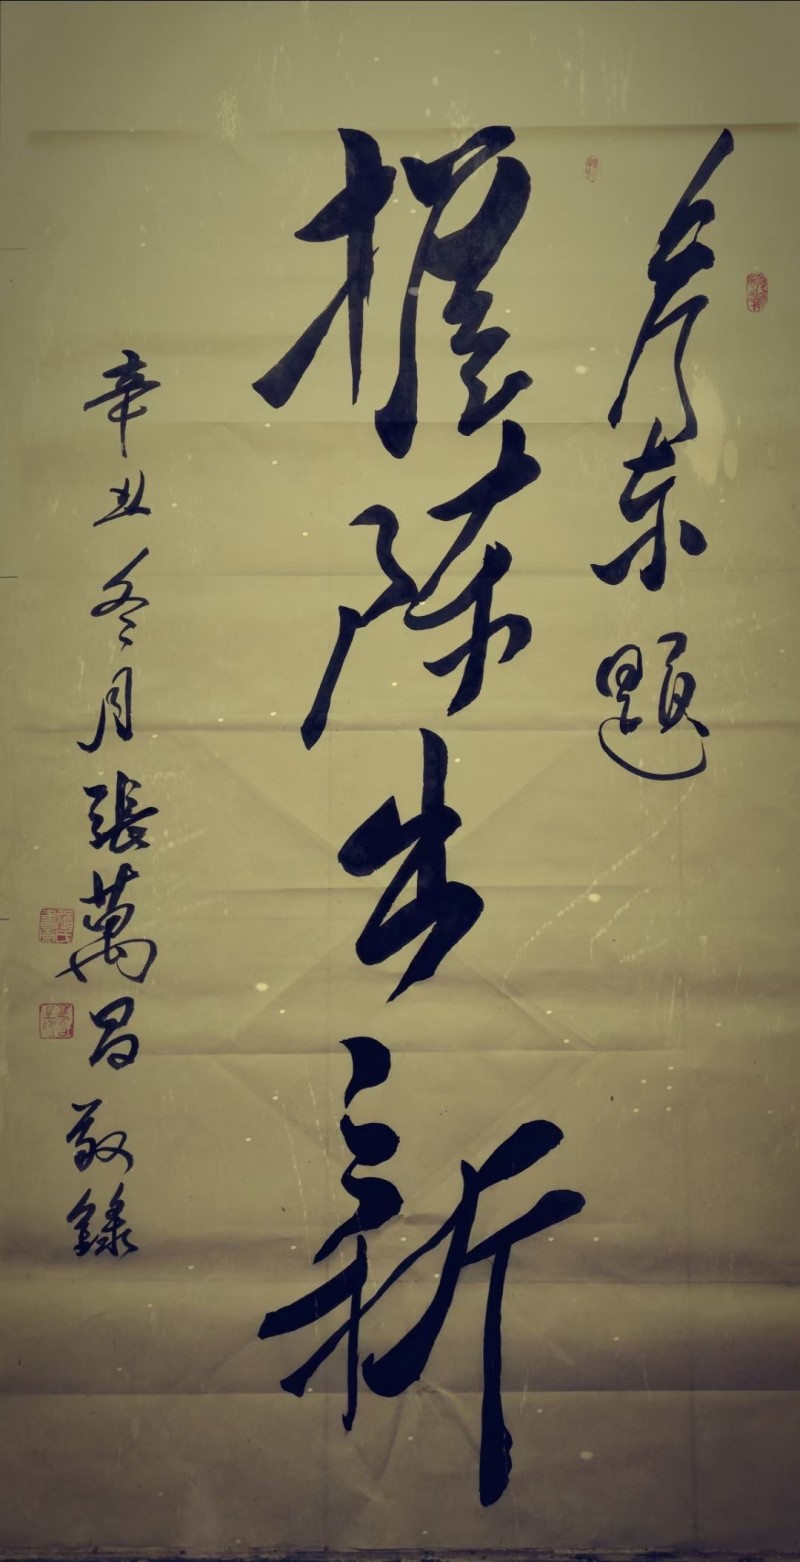 东题
推陈出新
辛丑冬月張萬昌敬錄